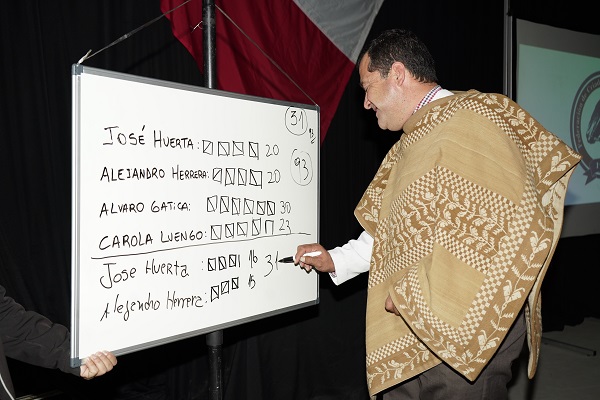 31
JOSÉ HUERTA: 20
ALEJANDRO HERRERA: 20
93
ALVARO GATICA: 30
CAROLA LUENGO: 23
Jose Huerta : 16 31
Alejendro Herrera: 15